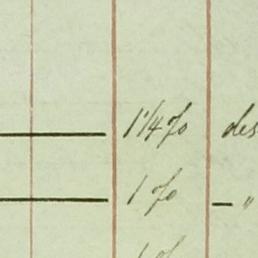 — 1 1/4 % des
— 1 % — "
1 %